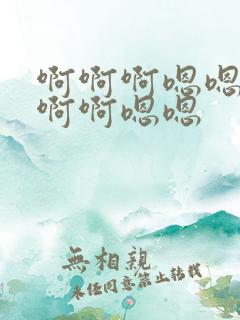 啊啊啊嗯嗯
啊啊嗯嗯
無相親
未經同意禁止轉載